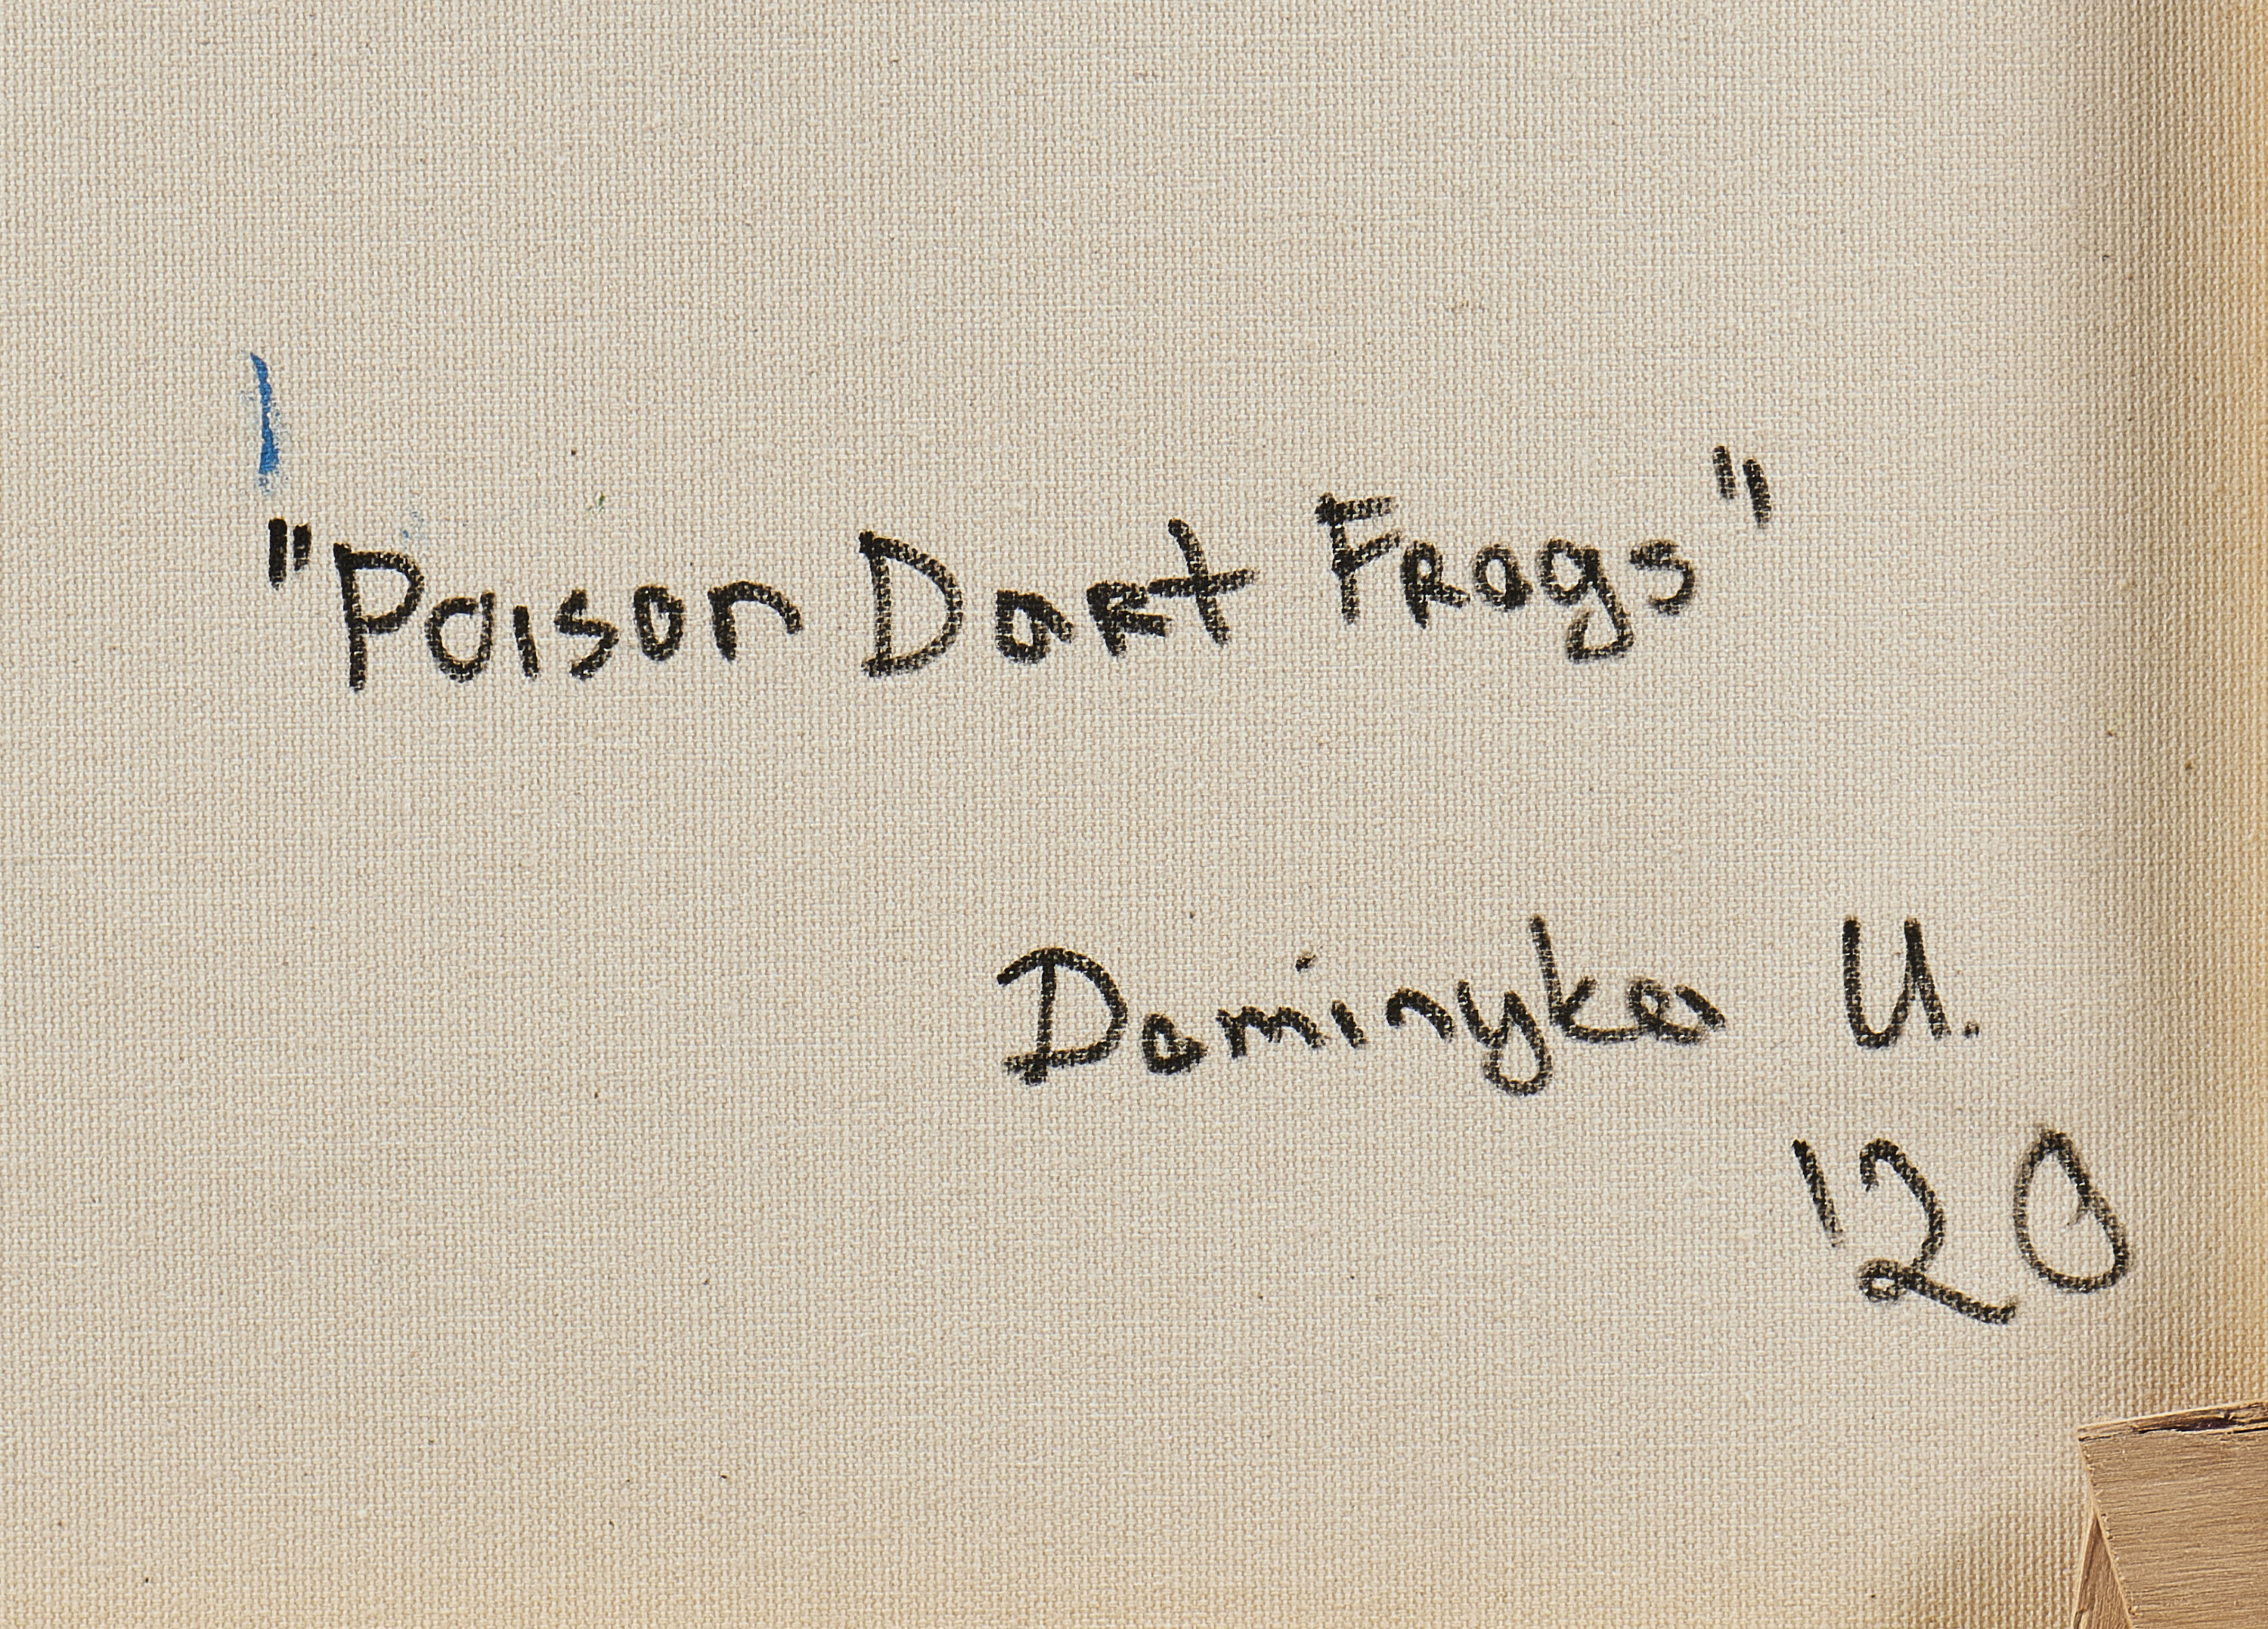 "Poison Dart Frogs"
Dominyka U.
'20